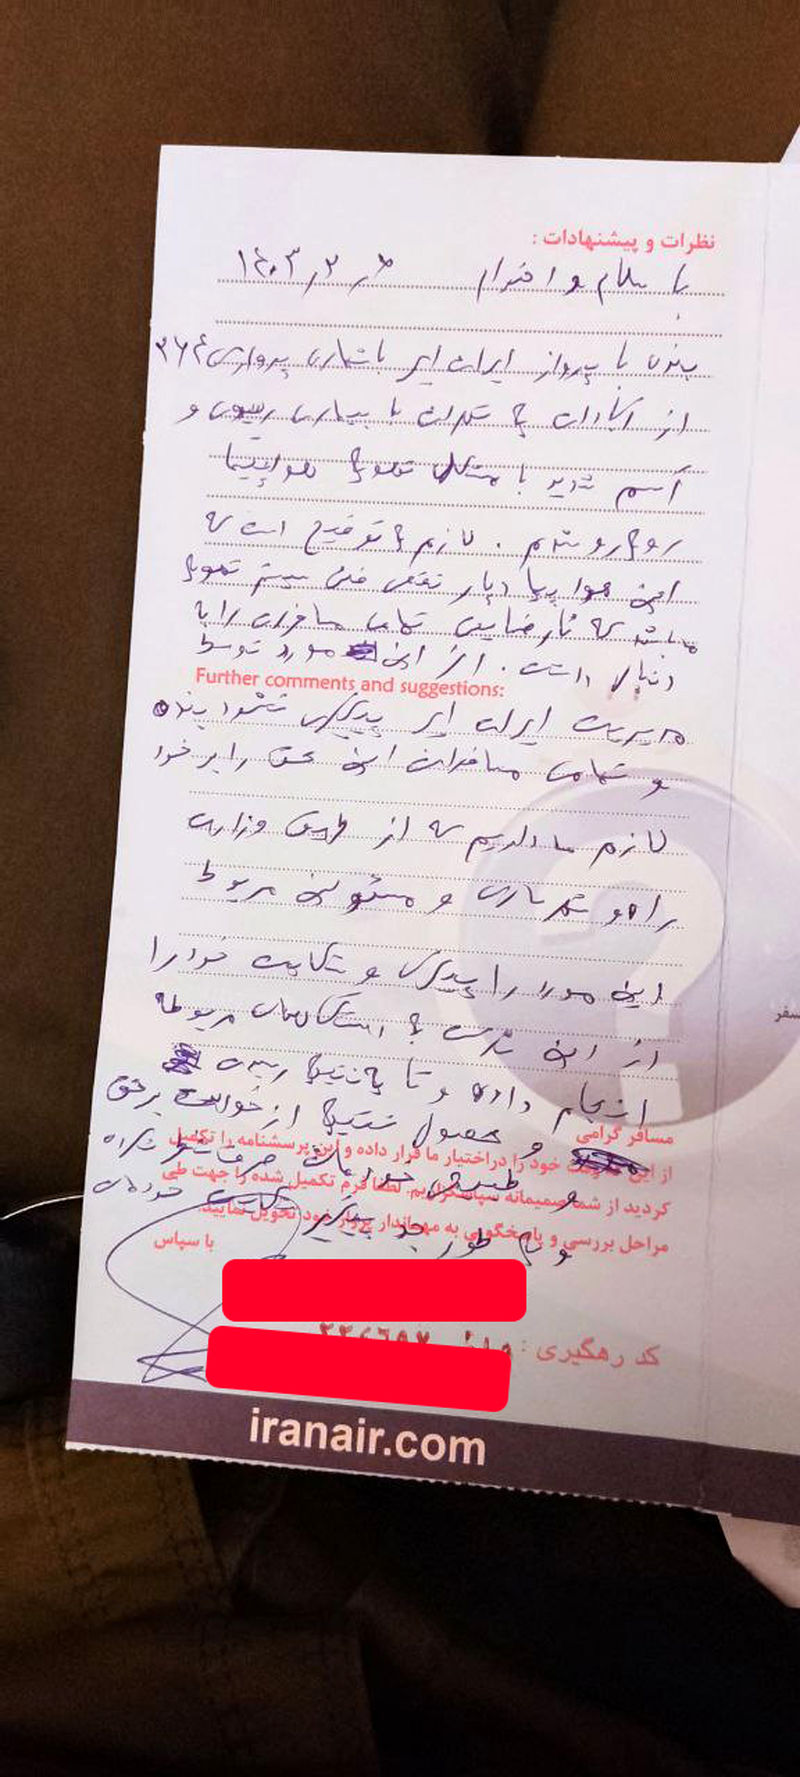 نظرات و پیشنهادات :
با سلام و احترام ۱۴۰۳٫۲٫۶
بنده با پرواز ایران ایر با شماره پروازی ۳۶۴
از آبادان به تهران با بیماری ریوی و
آسم شدید با مشکل تهویه هواپیما
روبرو شدم . لازم به توضیح است که
این هواپیما دچار نقص فنی سیستم تهویه
میباشد که نارضایتی تمامی مسافرین را به
دنبال داشت . از این مورد توسط
Further comments and suggestions:
مدیریت ایران ایر پیگیری نشود بنده
و تمامی مسافران این حق را بر خود
لازم میداریم که از طریق وزارت
راه و شهرسازی و مسئولین مربوط
این مورد را پیگیری و شکایت خود را
از این شرکت به ارگانهای مربوطه
انجام داده و تا به نتیجه رسیدن
و حصول نتیجه از خواست بر حق
مسافر گرامی
از این که وقت خود را در اختیار ما قرار داده و این پرسشنامه را تکمیل
و طبیعی خودمان صرف نظر نکرده
کردید از شما صمیمانه سپاسگزاریم. لطفا فرم تکمیل شده را جهت طی
مراحل بررسی و پاسخگویی به مهماندار پرواز خود تحویل نمایید.
و به طور جد پیگیر شکایت خودمان
با سپاس
کد رهگیری :
iranair.com
سفر